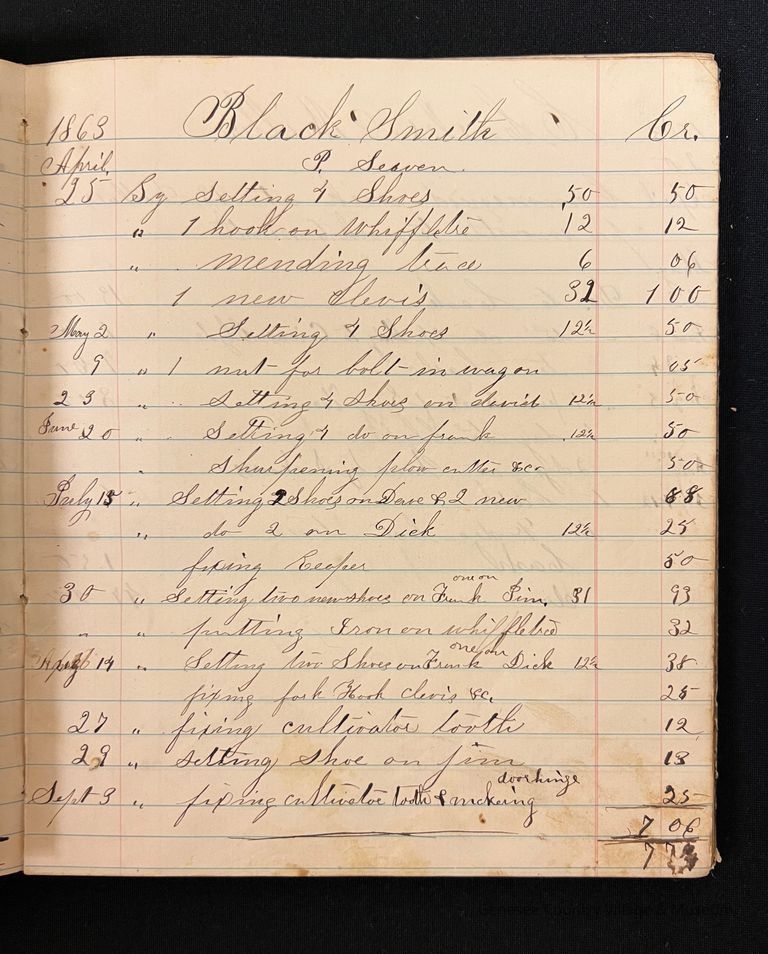 1863 Black Smith Cr.
April P. Seaven
25 By Setting 4 Shoes ,50 50
" 1 hook on Whiffletre 12 12
" mending trace 6 06
1 new Clevis 32 1 00
May 2 " Setting 4 Shoes 12½ 50
9 " 1 nut for bolt in wagon 05
23 " Setting 4 Shoes on david 12½ 50
June 20 " Setting 4 do on frank 12½ 50
" Sharpening plow cutter &c 50
July 15 " Setting 2 Shoes on Dave & 2 new 88
" do 2 on Dick 12½ 25
fixing Reaper 50
30 " Setting two new shoes on Frank one on Jim, 31 93
" " putting Iron on whiffletre 32
Aug 14 " Setting two Shoes on Frank one on Dick 12½ 38
fixing fork Hook clevis &c, 25
27 " fixing cultivator tooth 12
29 " setting shoe on jim 13
Sept 3 " fixing cultivator tooth & making door hinge 25
7 06
7
Genesee Country Village & Museum